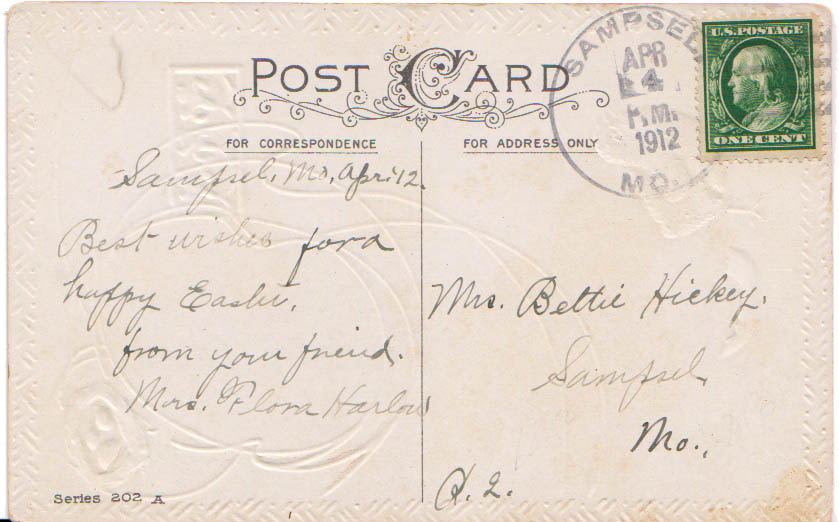 POST CARD
FOR CORRESPONDENCE
FOR ADDRESS ONLY
SAMPSEL
APR
4
P.M.
1912
MO.
U.S. POSTAGE
ONE CENT
Sampsel, Mo, Apr. 12.
Best wishes for a
happy Easter,
from your friend.
Mrs. Flora Harlow
Mrs. Bettie Hickey.
Sampsel,
Mo.,
R. 2.
Series 202 A